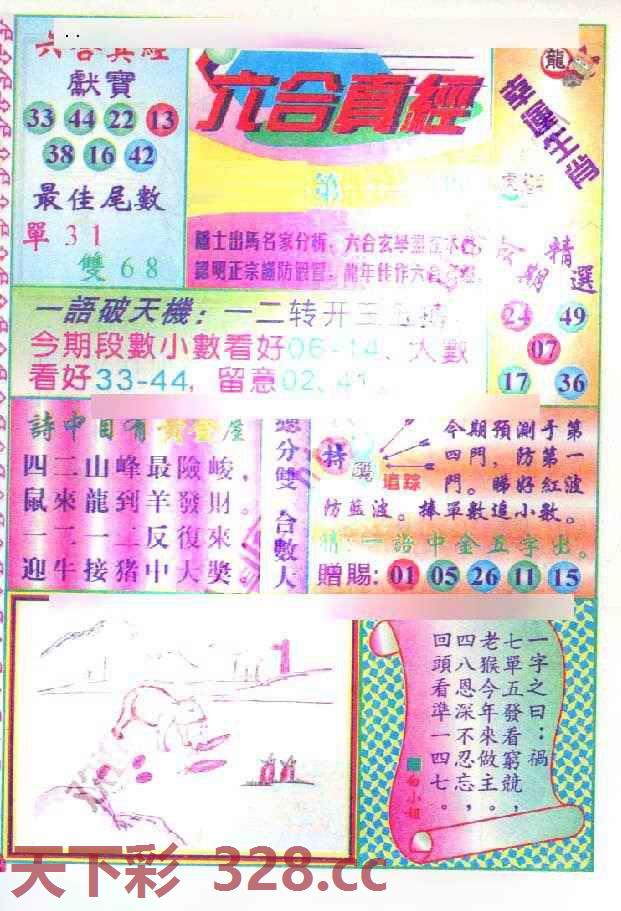 六合真經
獻寶
33 44 22 13
38 16 42
最佳尾數
單 31
雙 68
六合真經
龍
隱士出馬名家分析,六合玄學盡在本
認明正宗謹防假冒,龍年佳作六合
期 精選
24 49
07
17 36
一語破天機:一二转开三五
今期段數小數看好06-14、大數
看好33-44,留意02、41
詩中自有黃金屋
四二山峰最險峻,
鼠來龍到羊發財。
一二一二反復來
迎牛接猪中大獎。
總分雙 合數大
特
追踪
今期預測于第
四門,防第一
門。睇好紅波
防藍波。捧單數追小數。
猜:一語中金五字出。
贈賜: 01 05 26 11 15
1
一字之曰:禍
七單五發看窮兢,
老猴今年來做主。
四八恩深不忍忘,
回頭看準一四七。
白小姐
天下彩 328.cc